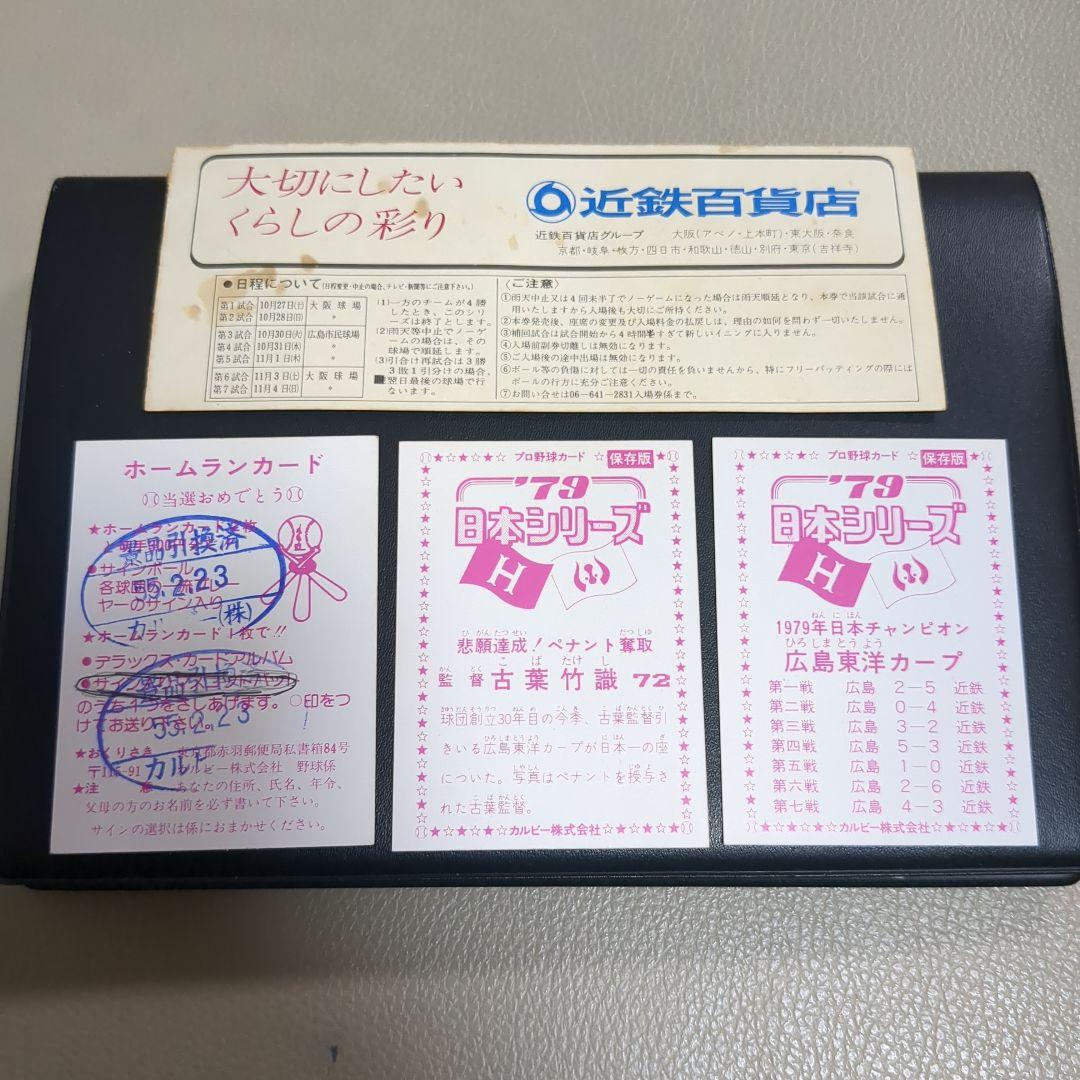 大切にしたい
くらしの彩り
近鉄百貨店
近鉄百貨店グループ 大阪(アベノ・上本町)・東大阪・奈良
京都・岐阜・枚方・四日市・和歌山・徳山・別府・東京(吉祥寺)
●日程について(日程変更・中止の場合、テレビ・新聞等にご注意下さい。)
第1試合 10月27日(土) 大阪球場
第2試合 10月28日(日) 〃
第3試合 10月30日(火) 広島市民球場
第4試合 10月31日(水) 〃
第5試合 11月1日(木) 〃
第6試合 11月3日(土) 大阪球場
第7試合 11月4日(日) 〃
(1)一方のチームが4勝
したとき、このシリ
ーズは終了とします。
(2)雨天等中止でノーゲ
ームの場合は、その
球場で順延します。
(3)引分け再試合は3勝
3敗1引分けの場合、
翌日最後の球場で行
ないます。
〈ご注意〉
①雨天中止又は4回未半了でノーゲームになった場合は雨天順延となり、本券で当該試合に通
用いたしますから入場後も大切にご所持ください。
②本券発売後、座席の変更及び入場料金の払戻しは、理由の如何を問わず一切いたしません。
③補回試合は試合開始から4時間をすぎて新しいイニングに入りません。
④入場前副券切離しは無効になります。
⑤ご入場後の途中出場は無効になります。
⑥ボール等の負傷に対しては一切の責任を負いませんから、特にフリーバッティングの際には
ボールの行方に充分ご注意ください。
⑦お問い合せは06-641-2831入場券係まで。
ホームランカード
当選おめでとう
★ホームランカード2枚
●サインボール
各球団の一流プレー
ヤーのサイン入り
★ホームランカード1枚で!!
●デラックス・カードアルバム
のうち1つをさしあげます。○印をつ
けてお送り下さい。
★おくりさき 東京都赤羽郵便局私書箱84号
〒115-91 カルビー株式会社 野球係
★注 意 あなたの住所、氏名、年令、
父母の方のお名前を必ず書いて下さい。
サインの選択は係におまかせください。
景品引換済
55.2.23
カルビー(株)
55.2.23
カルビー
プロ野球カード 保存版
'79
日本シリーズ
H
悲願達成!ペナント奪取
監督 古葉竹識 72
球団創立30年目の今季、古葉監督引
きいる広島東洋カープが日本一の座
についた。写真はペナントを授与さ
れた古葉監督。
カルビー株式会社
プロ野球カード 保存版
'79
日本シリーズ
H
1979年日本チャンピオン
広島東洋カープ
第一戦 広島 2-5 近鉄
第二戦 広島 0-4 近鉄
第三戦 広島 3-2 近鉄
第四戦 広島 5-3 近鉄
第五戦 広島 1-0 近鉄
第六戦 広島 2-6 近鉄
第七戦 広島 4-3 近鉄
カルビー株式会社